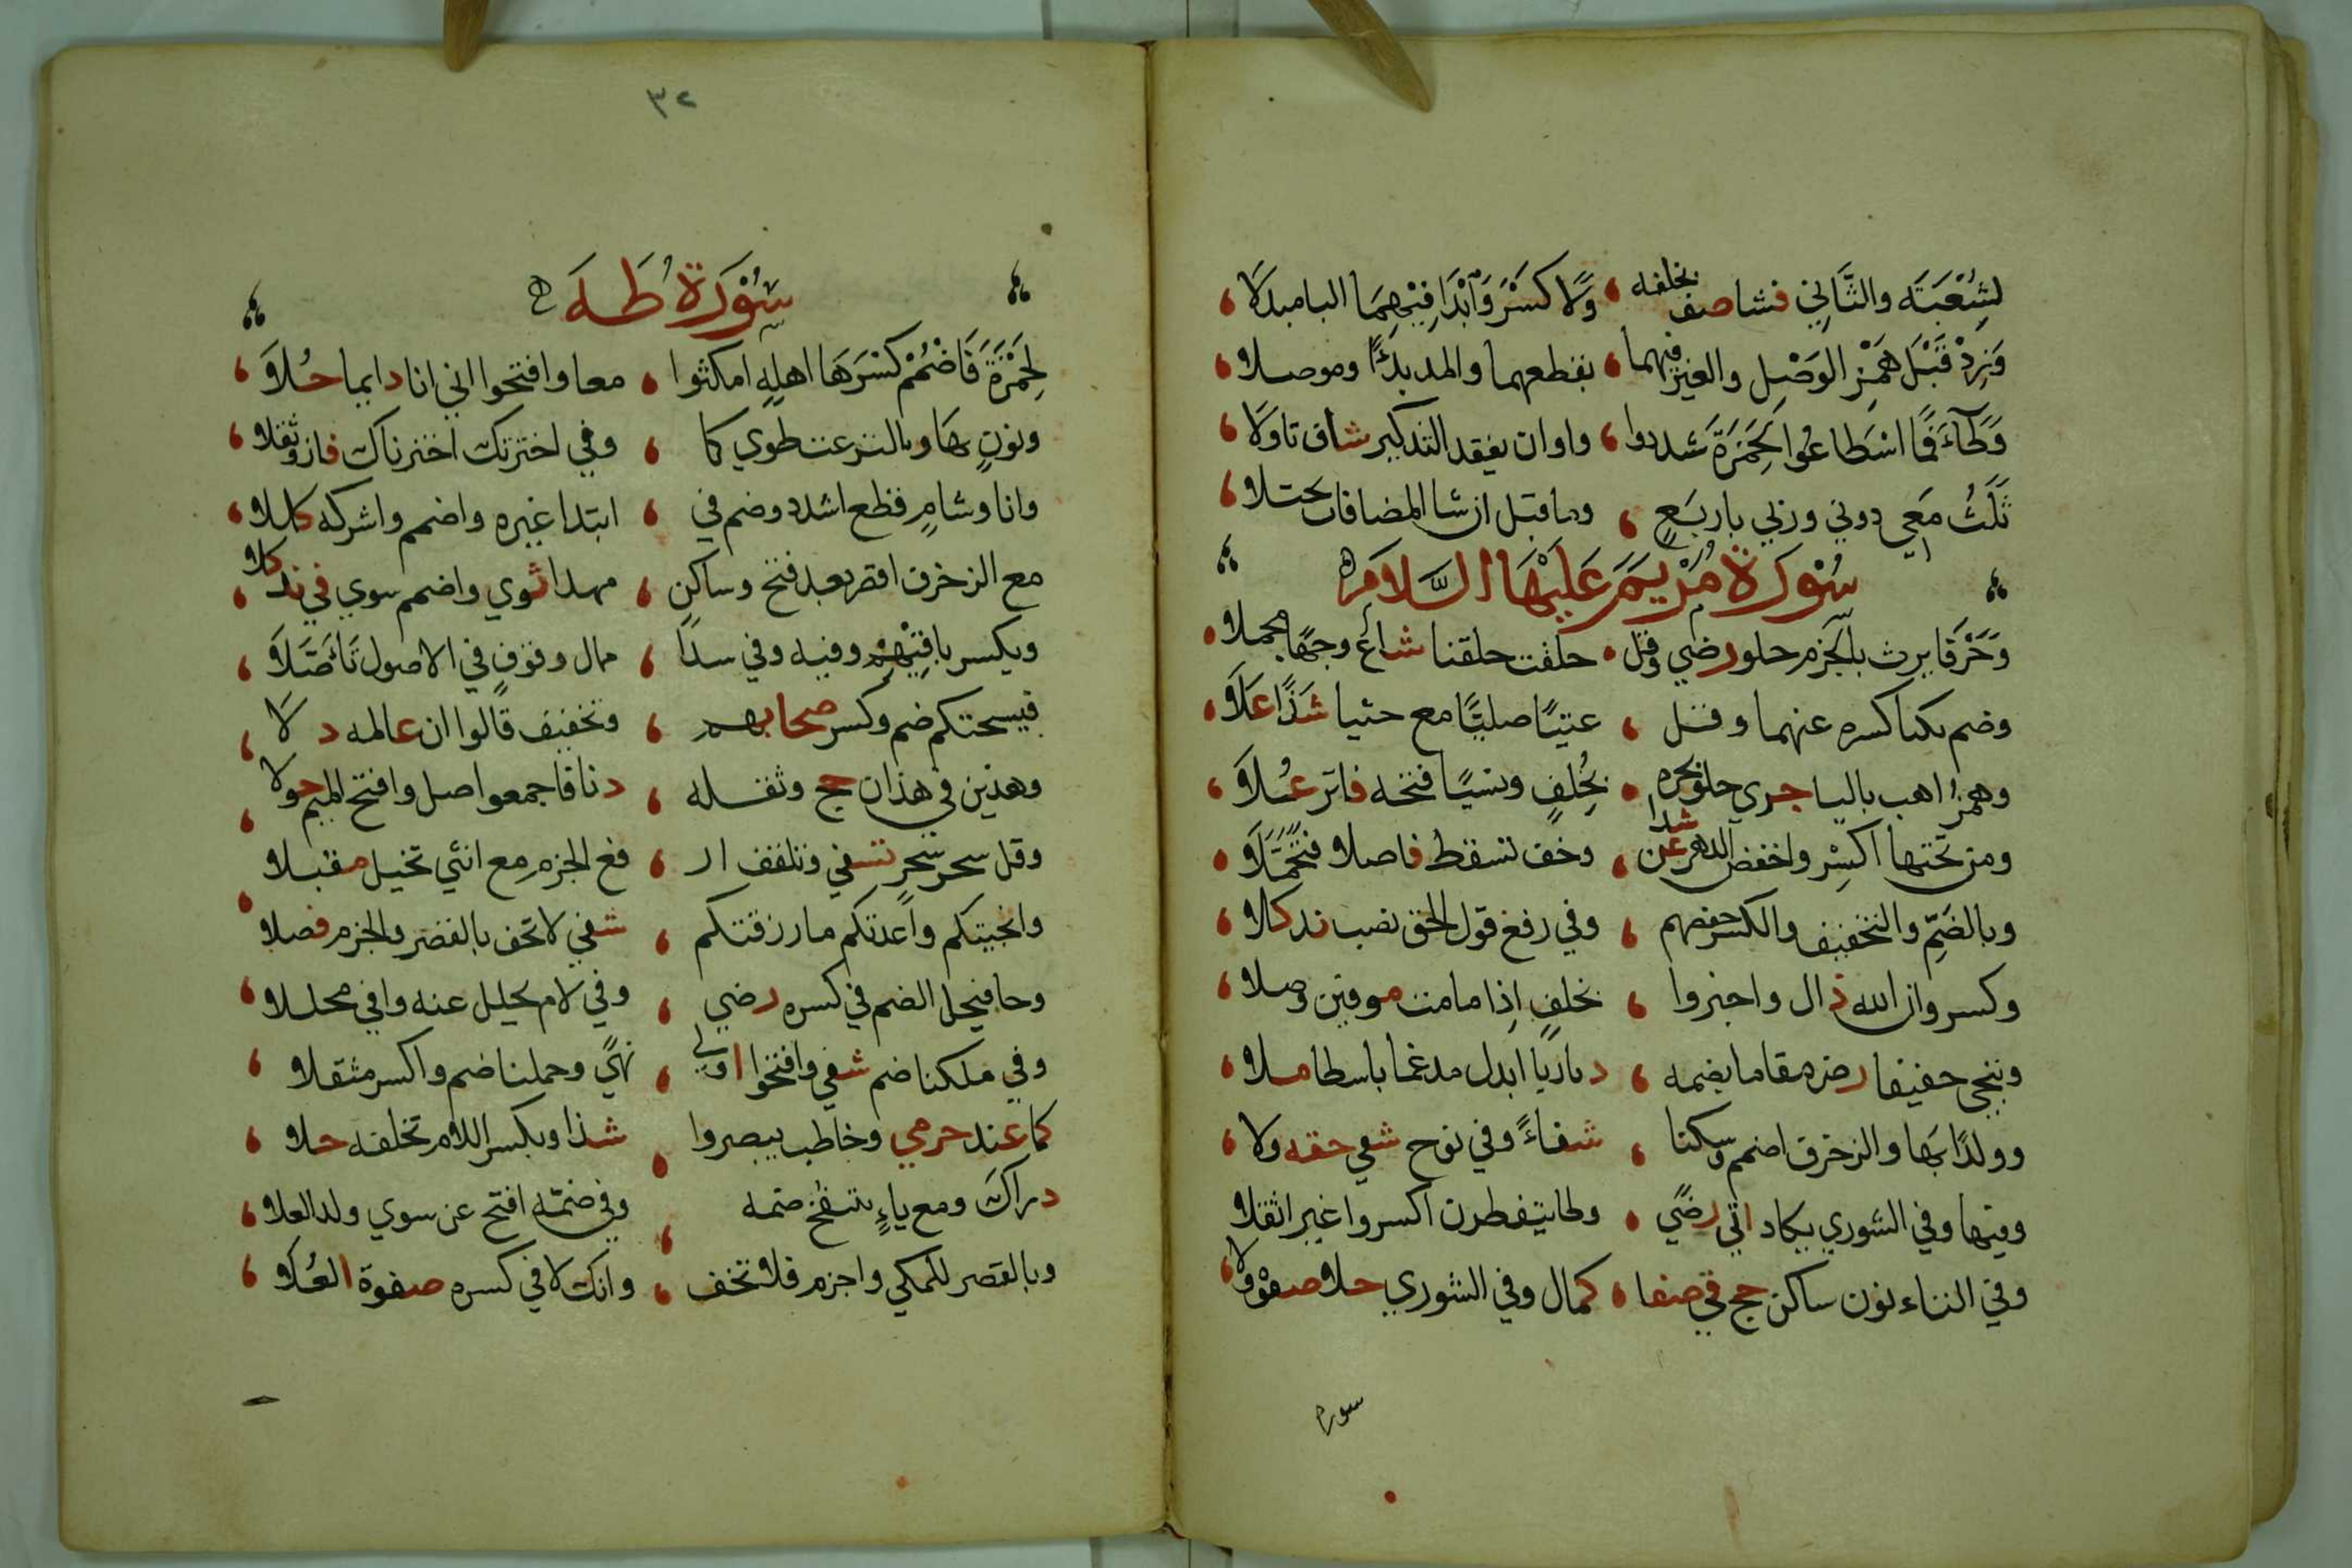 لِشُعْبَتَه والثَّانِي فشا صف بخلفه ، وَلَا كسْرَ وَابْدَا فِيْهِمَا اليا مبدلَا ،
وَزِدْ قَبْلَ هَمْزِ الوَصْلِ والغير فيهما ، بقطعهما والمد بدءًا وموصلا ،
وَطَاءَ فَمَا اسْطَاعُوا لِحَمْزَةَ شددوا ، وان ينفد التذكير شاف تاولا ،
ثَلَثُ مَعِي دوني وربي باربَعٍ ، وما قبل ان شا المضافات تجتلا ،
سُوْرَة مَرْيَمَ عَلَيْهَا السَّلَامَ
وَحَرْفَا يرث بالجَزم حلو رضي وقل ، خلقت خلقنا شاع وجهًا مجملا ،
وضم بكيا كسره عنهما وقل ، عتيًا صليًا مع جثيا شذًا عَلَا ،
وهمزُ اهب باليا جري حلو بحره ، بخُلفٍ ونسيًا فتحه فائز عُلَا ،
ومن تحتها اكسِر واخفض الدهر عن شذا ، وخف تسقط فاصلا فتُحُمِّلَا ،
وبالضَمِّ والتخفيف والكسر حفصهم ، وفي رفع قول الحق نصب ند كلا ،
وكسر وان الله ذال واخبروا ، بخلفٍ اذِا ما مت موفين وصلا ،
وننجي خفيفا رض مقاما بضمه ، دنا رئيا ابدل مدغما باسطا ملا ،
وولدًا بهَا والزخرف اضمم وسكنا ، شفاءً وفي نوح شفي حقه ولا ،
وفيها وفي الشوري يكاد اتي رضًي ، وطا يتفطرن اكسروا غير اثقلا
وفي التاء نون ساكن حج في صفا ، كمال وفي الشوري حلا صفوه ولا ،
سوره
٣٢
سُوْرَة طَهَ
لِحَمْزَةَ فَاضْمُمْ كسْرَهَا اهلهِ امكثوا ، معا وافتحوا اني انا دايما حُلَا ،
ونونٍ بها والنزعت طوي كا ، وفي اخترتك اخترناك فاز وثقلا ،
وانا وشامٍ قطع اشدد وضم في ، ابتدا غيره واضمم واشركه كلكلا ،
مع الزخرف اقصر بعد فتح وساكنٍ ، مهدا ثوي واضمم سوي في ند كلا ،
ويكسر باقيهْم وفيه وفي سدًا ، ممال وقوفٍ في الاصول تَاصَّلَا ،
فيسحتكم ضم وكسر صحابهم ، وتخفيف قالوا ان عالمه دلَا ،
وهذين في هذان حج وثقله ، دنا فاجمعوا صل وافتح الميم حولا ،
وقل سحر سحرٍ شفي وتلقف ار ، فع الجزم مع انثي تخيل مقبلا ،
وانجيتكم واعدتكم ما رزقتكم ، شفي لا تخف بالقصر والجزم فصلا
وحا فيحل الضم في كسره رضي ، وفي لام يحلل عنه وافي محللا ،
وفي ملكنا ضم شفي وافتحوا اولي ، نهًي وحملنا ضم واكسر مثقلا ،
كما عند حرمي وخاطب يبصروا ، شذا وبكسر اللام تخلفه حلا ،
دراك ومع ياءٍ بننفخ ضمه ، وفي ضمّه افتح عن سوي ولد العلا ،
وبالقصر للمكي واجزم فلا تخف ، وانك لا في كسره صفوة العُلَا ،